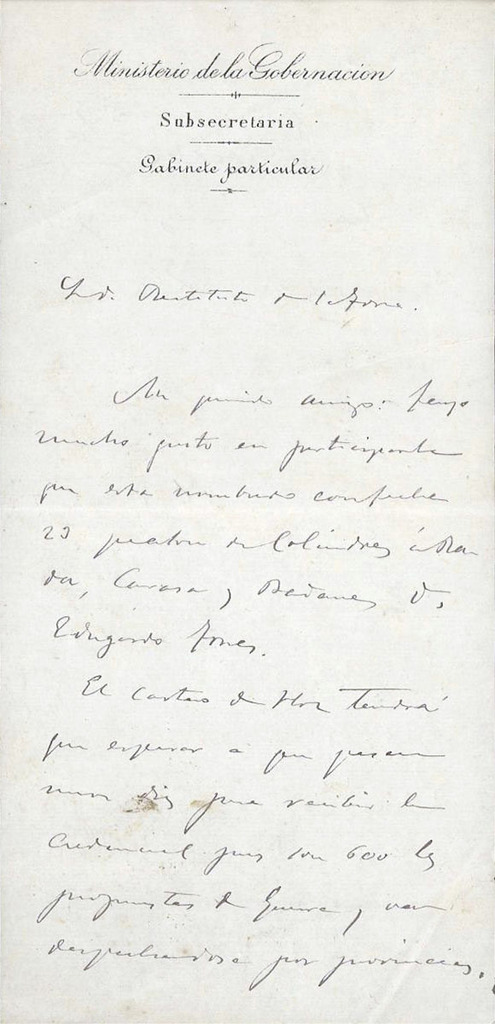 Ministerio de la Gobernacion
Subsecretaria
Gabinete particular
Sr. D. Restituto de la Torre.
Mi querido amigo: tengo
mucho gusto en participarle
que esta nombrado con fecha
23 peaton de Colindres á Ra
da, Carasa y Badames D.
Edugardo Torres.
El cartero de Hoz tendrá
que esperar a que pasen
unos dias para recibir la
credencial pues son 600 las
propuestas de Guerra y van
despachandose por provincias.